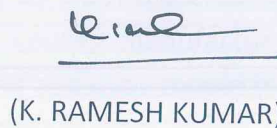 (K. RAMESH KUMAR)